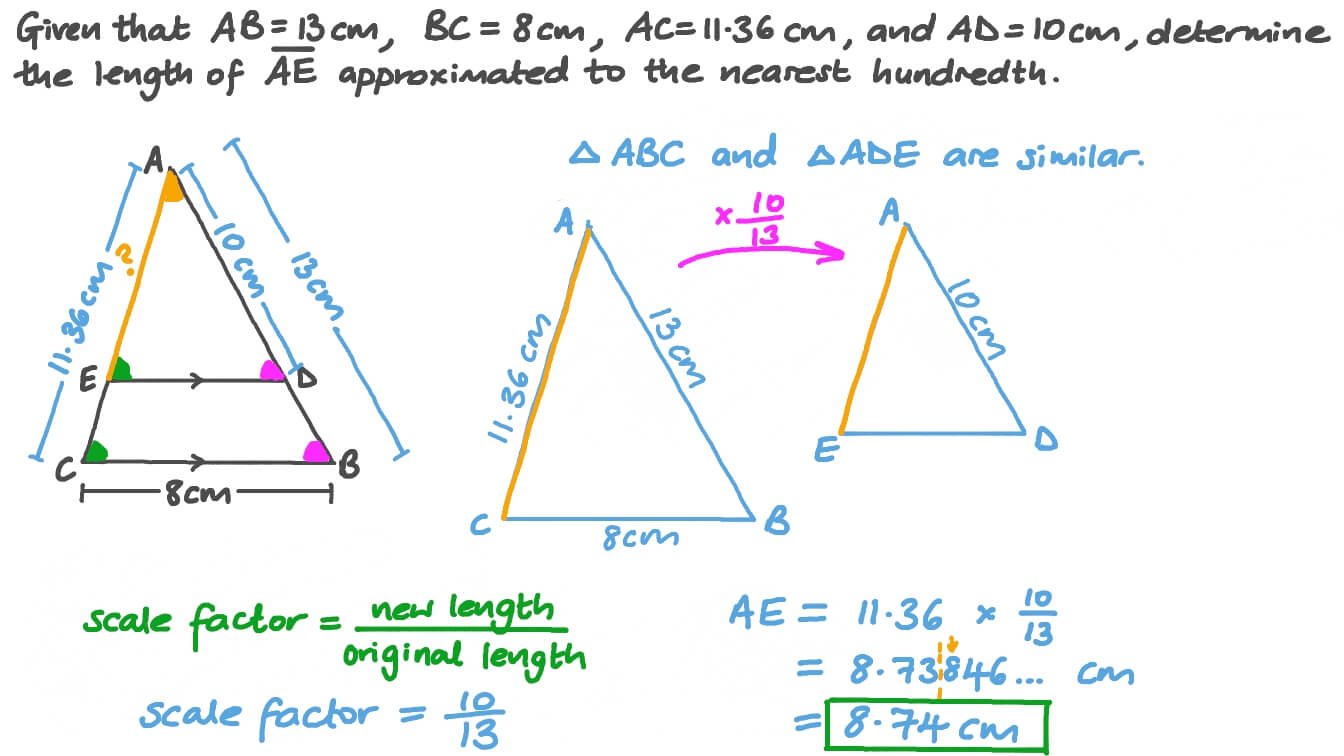 Given that AB = 13 cm, BC = 8 cm, AC = 11.36 cm, and AD = 10 cm, determine
the length of AE approximated to the nearest hundredth.
△ ABC and △ ADE are similar.
A
11.36 cm
?
10 cm
13 cm
E
D
C
B
8 cm
A
11.36 cm
13 cm
C
B
8 cm
× 10/13
A
10 cm
E
D
scale factor = new length / original length
scale factor = 10/13
AE = 11.36 × 10/13
= 8.73846... cm
= 8.74 cm